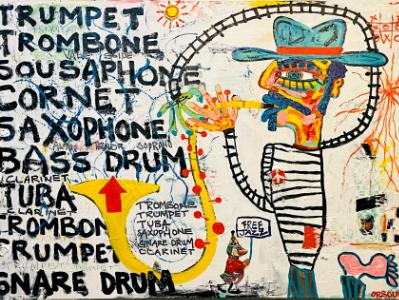 TRUMPET
TROMBONE
SOUSAPHONE
CORNET
SAXOPHONE
ALTO TENOR SOPRANO
BASS DRUM
CLARINET
TUBA
CLARINET
TROMBON
TRUMPET
SNARE DRUM
TROMBONE
TRUMPET
TUBA
SAXOPHONE
SNARE DRUM
CLARINET
FREE
JAZZ